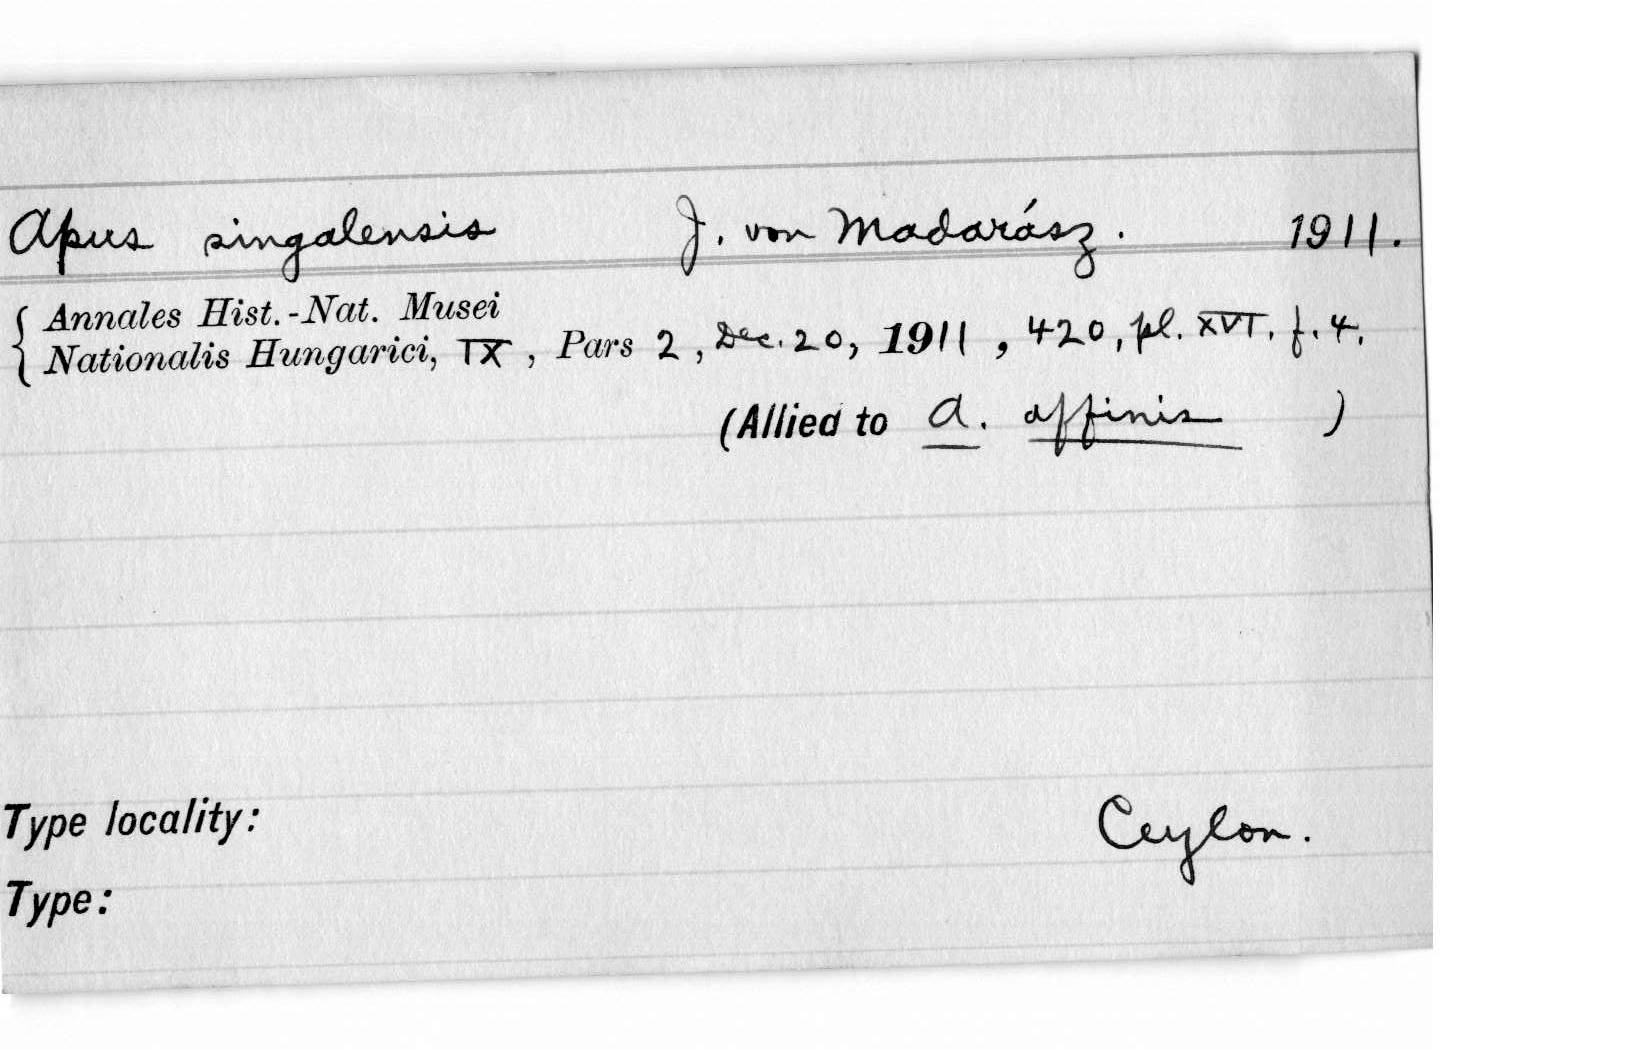 Apus singalensis J. von Madarász. 1911.
{ Annales Hist.-Nat. Musei
Nationalis Hungarici, IX, Pars 2, Dec. 20, 1911, 420, pl. XVI. f. 4.
(Allied to A. affinis )
Type locality: Ceylon.
Type: